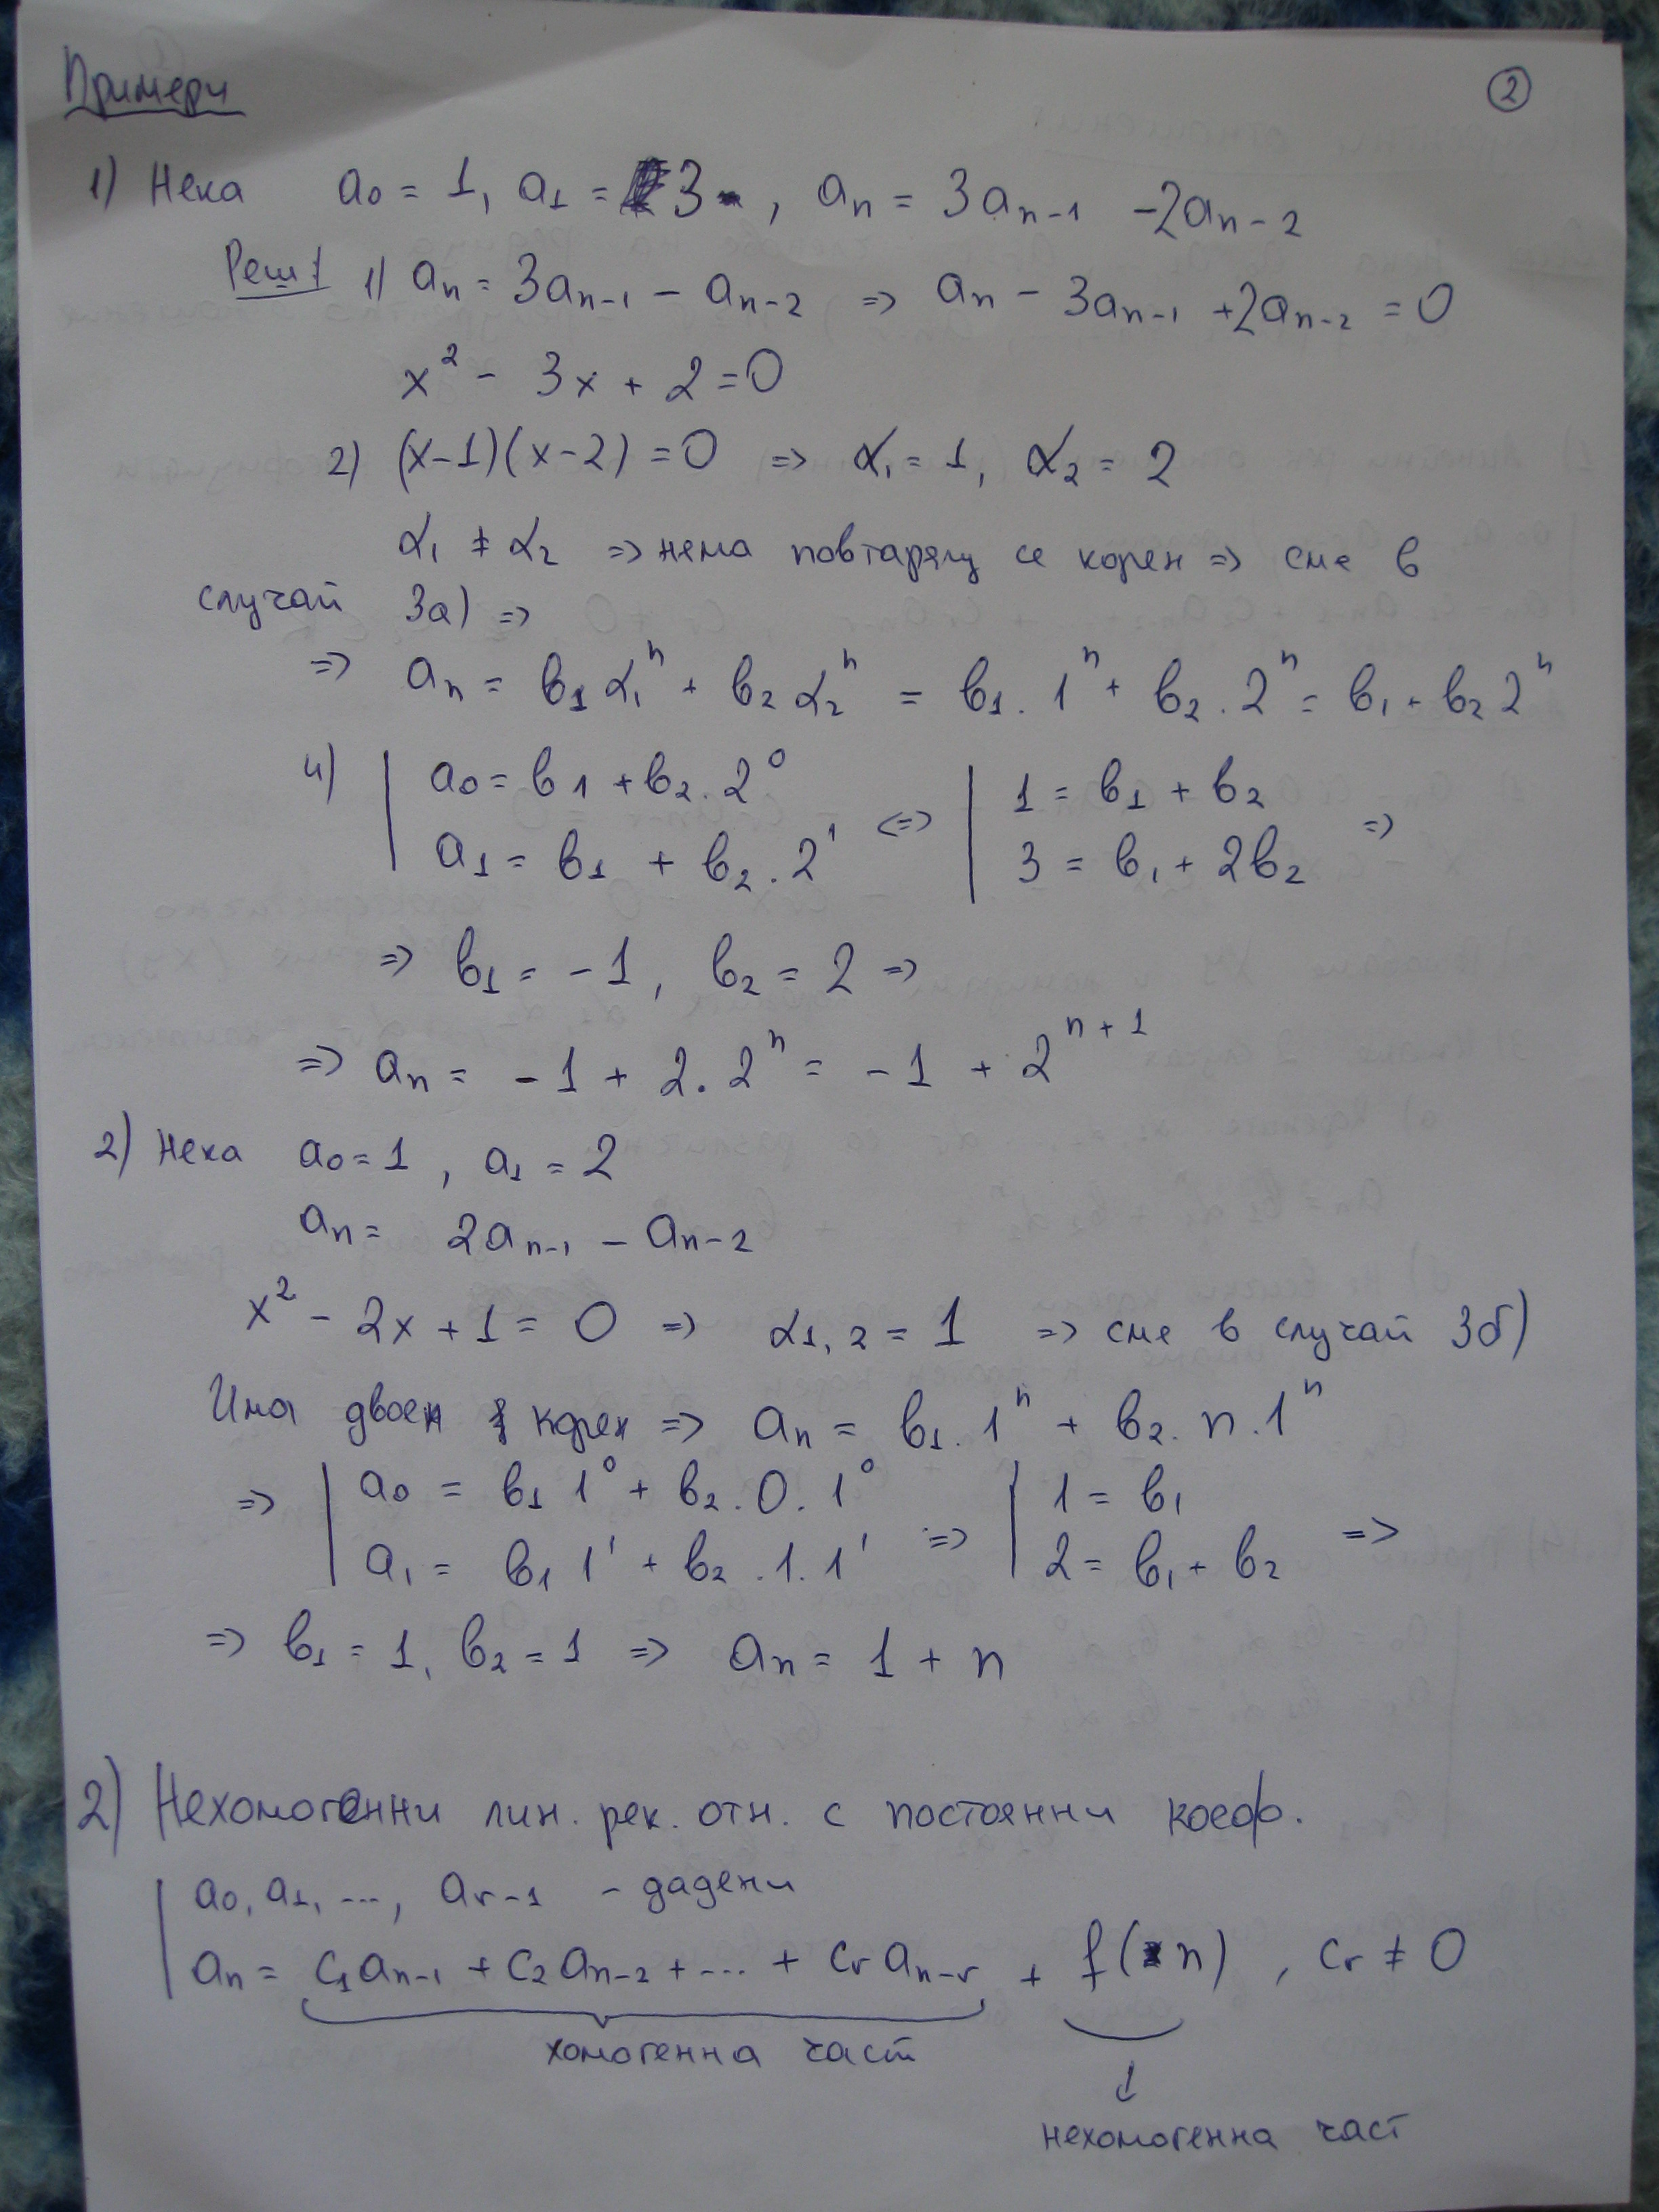 Примери
②
1) Нека a₀ = 1, a₁ = 3, aₙ = 3aₙ₋₁ - 2aₙ₋₂
Реш 1) aₙ = 3aₙ₋₁ - aₙ₋₂ => aₙ - 3aₙ₋₁ + 2aₙ₋₂ = 0
x² - 3x + 2 = 0
2) (x-1)(x-2) = 0 => α₁ = 1, α₂ = 2
α₁ ≠ α₂ => нема повтарящ се корен => сме в
случай 3а) =>
=> aₙ = b₁α₁ⁿ + b₂α₂ⁿ = b₁.1ⁿ + b₂.2ⁿ = b₁ + b₂2ⁿ
4) | a₀ = b₁ + b₂.2⁰ <=> | 1 = b₁ + b₂
| a₁ = b₁ + b₂.2¹ | 3 = b₁ + 2b₂ =>
=> b₁ = -1, b₂ = 2 =>
=> aₙ = -1 + 2.2ⁿ = -1 + 2ⁿ⁺¹
2) Нека a₀ = 1, a₁ = 2
aₙ = 2aₙ₋₁ - aₙ₋₂
x² - 2x + 1 = 0 => α₁,₂ = 1 => сме в случай 3б)
Има двоен корен => aₙ = b₁.1ⁿ + b₂.n.1ⁿ
=> | a₀ = b₁1⁰ + b₂.0.1⁰ => | 1 = b₁
| a₁ = b₁1¹ + b₂.1.1¹ | 2 = b₁ + b₂ =>
=> b₁ = 1, b₂ = 1 => aₙ = 1 + n
2) Нехомогенни лин. рек. отн. с постоянни коеф.
| a₀, a₁, ..., aᵣ₋₁ - дадени
| aₙ = c₁aₙ₋₁ + c₂aₙ₋₂ + ... + cᵣaₙ₋ᵣ + f(n), cᵣ ≠ 0
хомогенна част
нехомогенна част